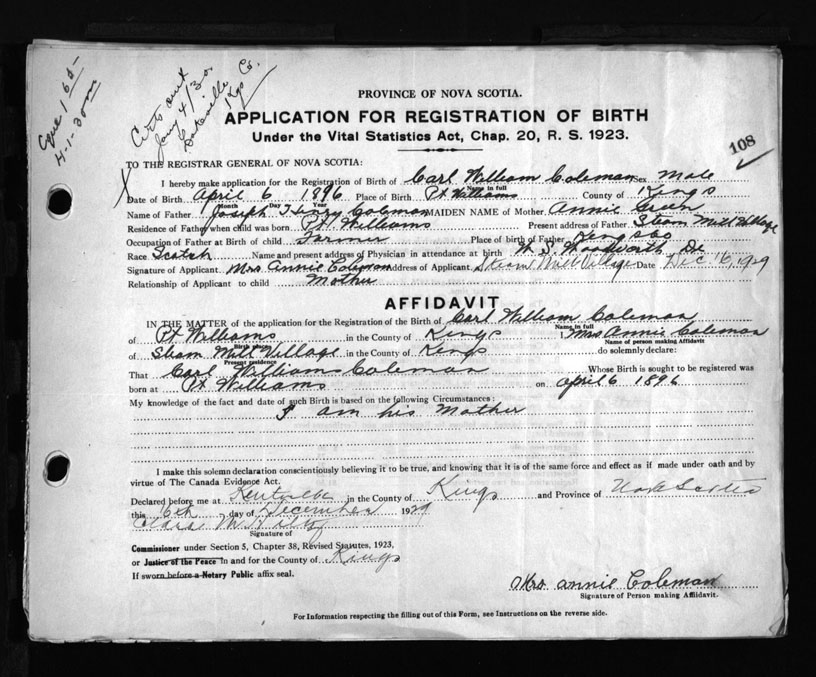 Cque 1 65-
4-1-30
Cets out
Jany 4/30
Lakeville
Kgs Co.
PROVINCE OF NOVA SCOTIA.
APPLICATION FOR REGISTRATION OF BIRTH
Under the Vital Statistics Act, Chap. 20, R. S. 1923.
108
TO THE REGISTRAR GENERAL OF NOVA SCOTIA:
I hereby make application for the Registration of Birth of Carl William Coleman Sex Male
Name in full
Date of Birth April 6 1896 Place of Birth Pt Williams County of Kings
Month Day Year
Name of Father Joseph Henry Coleman MAIDEN NAME of Mother Annie Green
Residence of Father when child was born Pt. Williams Present address of Father Steam Mill Village
Occupation of Father at Birth of child Farmer Place of birth of Father
Race Scotch Name and present address of Physician in attendance at birth W. S. Woodworth De
Signature of Applicant Mrs Annie Coleman Address of Applicant Steam Mill Village Date Dec 16, 1929
Relationship of Applicant to child Mother
AFFIDAVIT
IN THE MATTER of the application for the Registration of the Birth of Carl William Coleman
Name in full
of Pt Williams in the County of Kings I Mrs Annie Coleman
Birth place
Name of person making Affidavit
of Steam Mill Village in the County of Kings do solemnly declare:
Present residence
That Carl William Coleman Whose Birth is sought to be registered was
born at Pt Williams on April 6 1896
My knowledge of the fact and date of such Birth is based on the following Circumstances:
I am his Mother
I make this solemn declaration conscientiously believing it to be true, and knowing that it is of the same force and effect as if made under oath and by
virtue of The Canada Evidence Act.
Declared before me at Kentville in the County of Kings and Province of Nova Scotia
this 16th day of December 1929
Signature of
Commissioner under Section 5, Chapter 38, Revised Statutes, 1923,
or Justice of the Peace in and for the County of Kings
If sworn before a Notary Public affix seal.
Mrs Annie Coleman
Signature of Person making Affidavit.
For Information respecting the filling out of this Form, see Instructions on the reverse side.